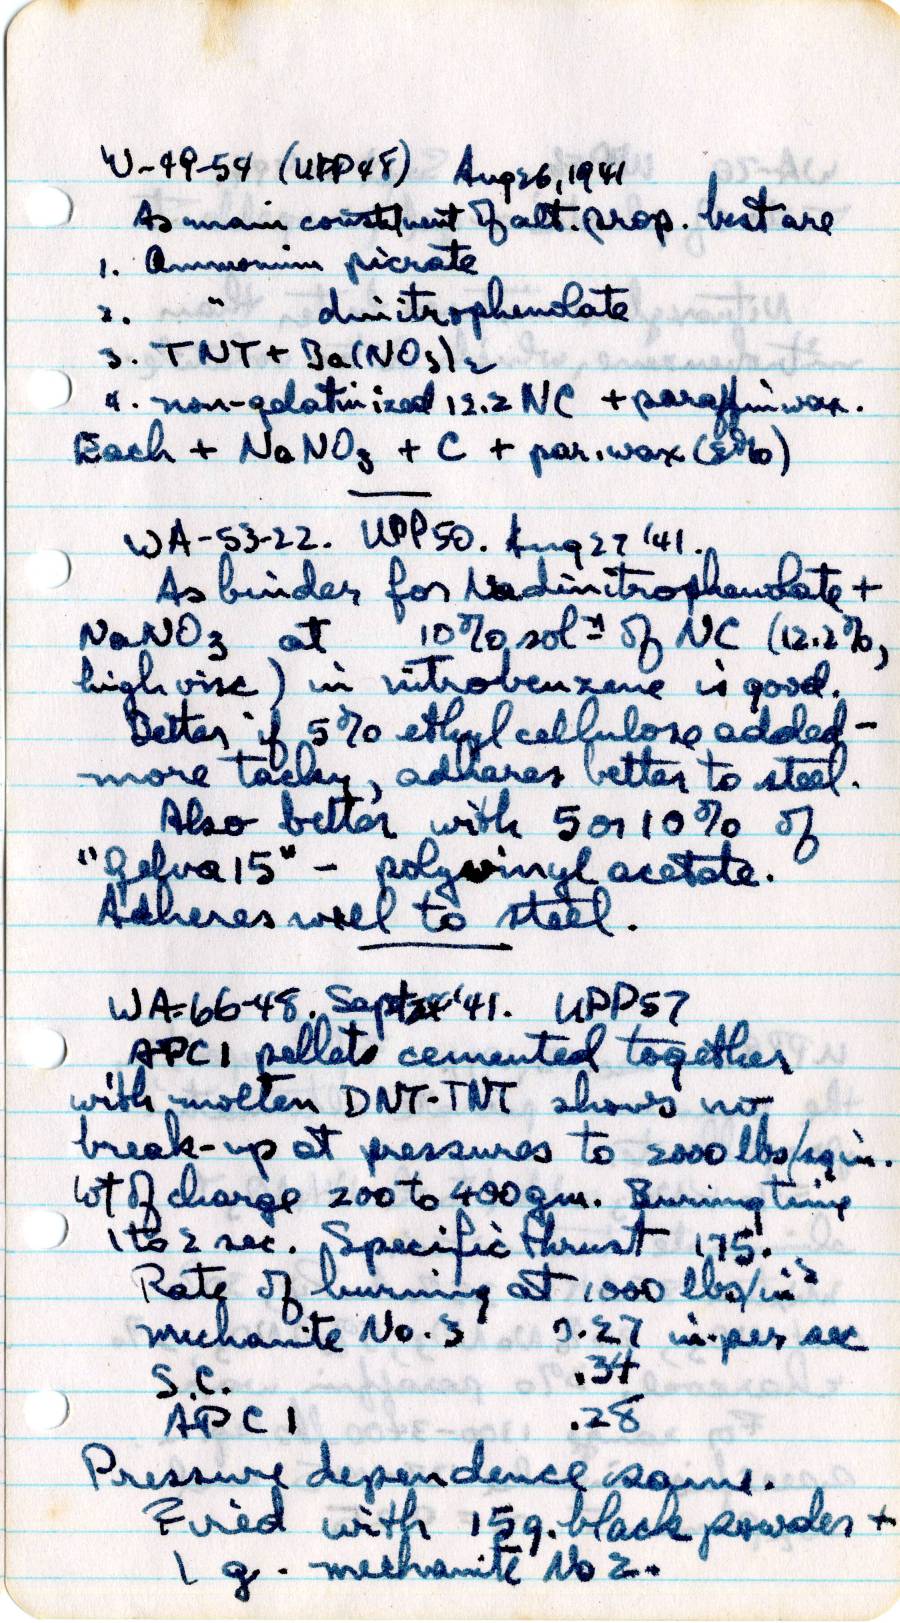 W-49-54 (UPP48) Aug 26, 1941
As main constituent of alt. prop. best are
1. Ammonium picrate
2. " dinitrophenolate
3. TNT + Ba(NO3)2
4. non-gelatinized 12.2 NC + paraffin wax.
Each + NaNO3 + C + par. wax (2%)
WA-53-22. UPP50. Aug 27 '41.
As binder for Na dinitrophenolate +
NaNO3 at 10% soln of NC (12.2%,
high visc) in nitrobenzene is good.
Better if 5% ethyl cellulose added -
more tacky, adheres better to steel.
Also better with 5 or 10% of
"Gelva 15" - polyvinyl acetate.
Adheres well to steel.
WA-66-48. Sept '41. UPP57
APC1 pellets cemented together
with molten DNT-TNT shows no
break-up at pressures to 2000 lbs/sq in.
Wt of charge 200 to 400 gm. Burning time
1 to 2 sec. Specific thrust 175.
Rate of burning at 1000 lbs/in2
mechanite No. 3 0.27 in. per sec
S.C. .34
APC1 .28
Pressure dependence same.
Fired with 15g. black powder +
1 g. mechanite No 2.